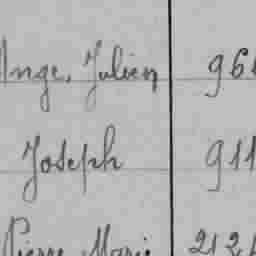 Ange, Julien 96
Joseph 911
Pierre Marie 212